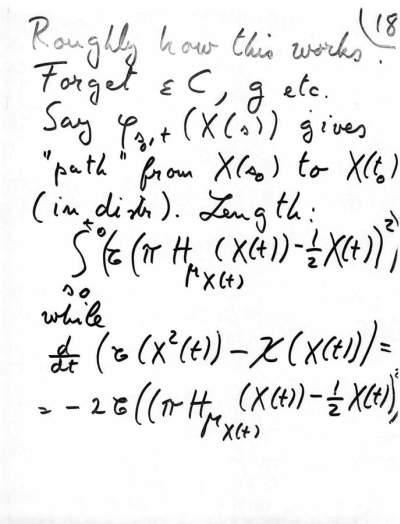 18
Roughly how this works.
Forget εC, g etc.
Say φ_{s,t}(X(s)) gives
"path" from X(s₀) to X(t₀)
(in distr). Length:
∫_{s0}^{t0} (τ(πH_{μ_{X(t)}}(X(t)) - ½X(t))²)
while
d/dt (τ(X²(t)) - χ(X(t))) =
= -2τ((πH_{μ_{X(t)}}(X(t)) - ½X(t))²